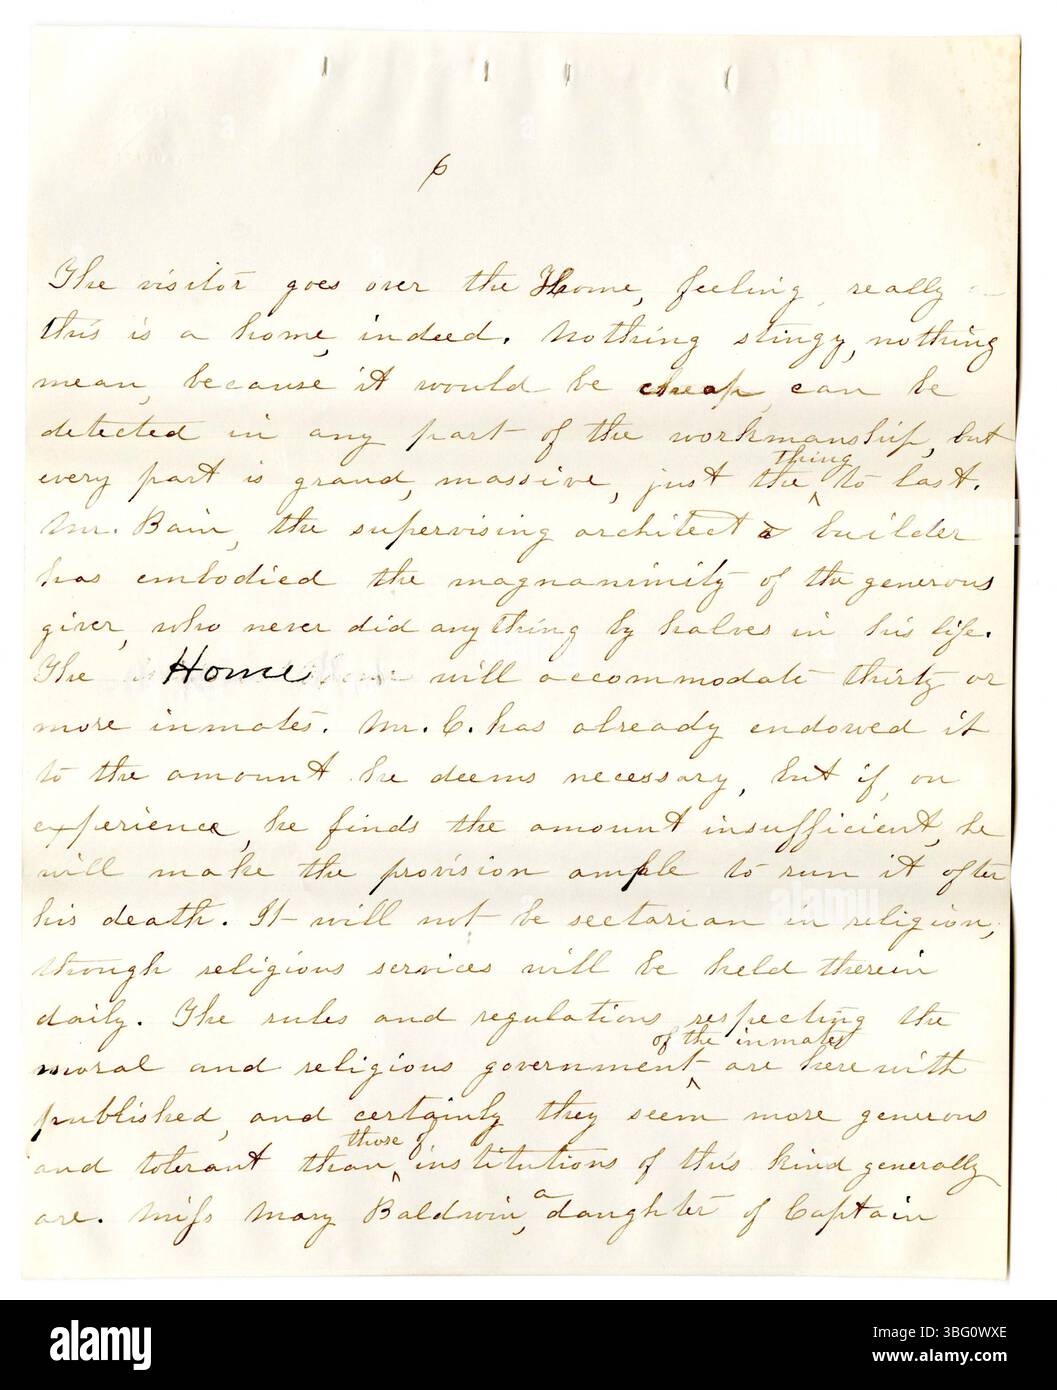 6
The visitor goes over the Home, feeling, really
this is a home, indeed. Nothing stingy, nothing
mean, because it would be cheap, can be
detected in any part of the workmanship, but
thing
every part is grand, massive, just the ^ to last.
Mr. Bain, the supervising architect & builder
has embodied the magnanimity of the generous
giver, who never did anything by halves in his life.
The Home will accommodate thirty or
more inmates. Mr. C. has already endowed it
to the amount he deems necessary, but if, on
experience, he finds the amount insufficient, he
will make the provision ample to run it after
his death. It will not be sectarian in religion;
though religious services will be held therein
daily. The rules and regulations respecting the
of the inmates
moral and religious government ^ are herewith
published, and certainly they seem more generous
those of
and tolerant than ^ institutions of this kind generally
are. Miss Mary Baldwin, a daughter of Captain
alamy
Image ID: 3BG0WXE
www.alamy.com